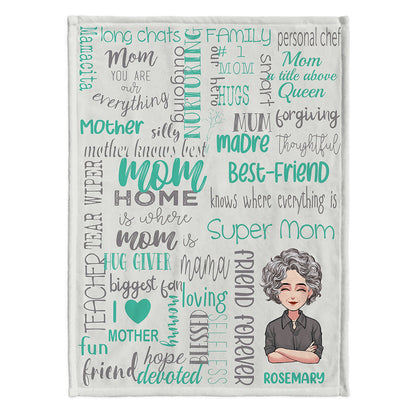 Mamacita
long chats
Mom
YOU ARE
our
everything
Mother
silly
mother knows best
NURTURING
outgoing
FAMILY
our hero
# 1
MOM
HUGS
smart
personal chef
Mom
a title above
Queen
forgiving
MUM
madre
Thoughtful
Best-Friend
knows where everything is
TEAR WIPER
TEACHER
mom
HOME
is where
mom is
HUG GIVER
biggest fan
I ♥
MOTHER
fun
friend
hope
devoted
mommy
mama
loving
BLESSED
SELFLESS
FRIEND FOREVER
Super Mom
ROSEMARY